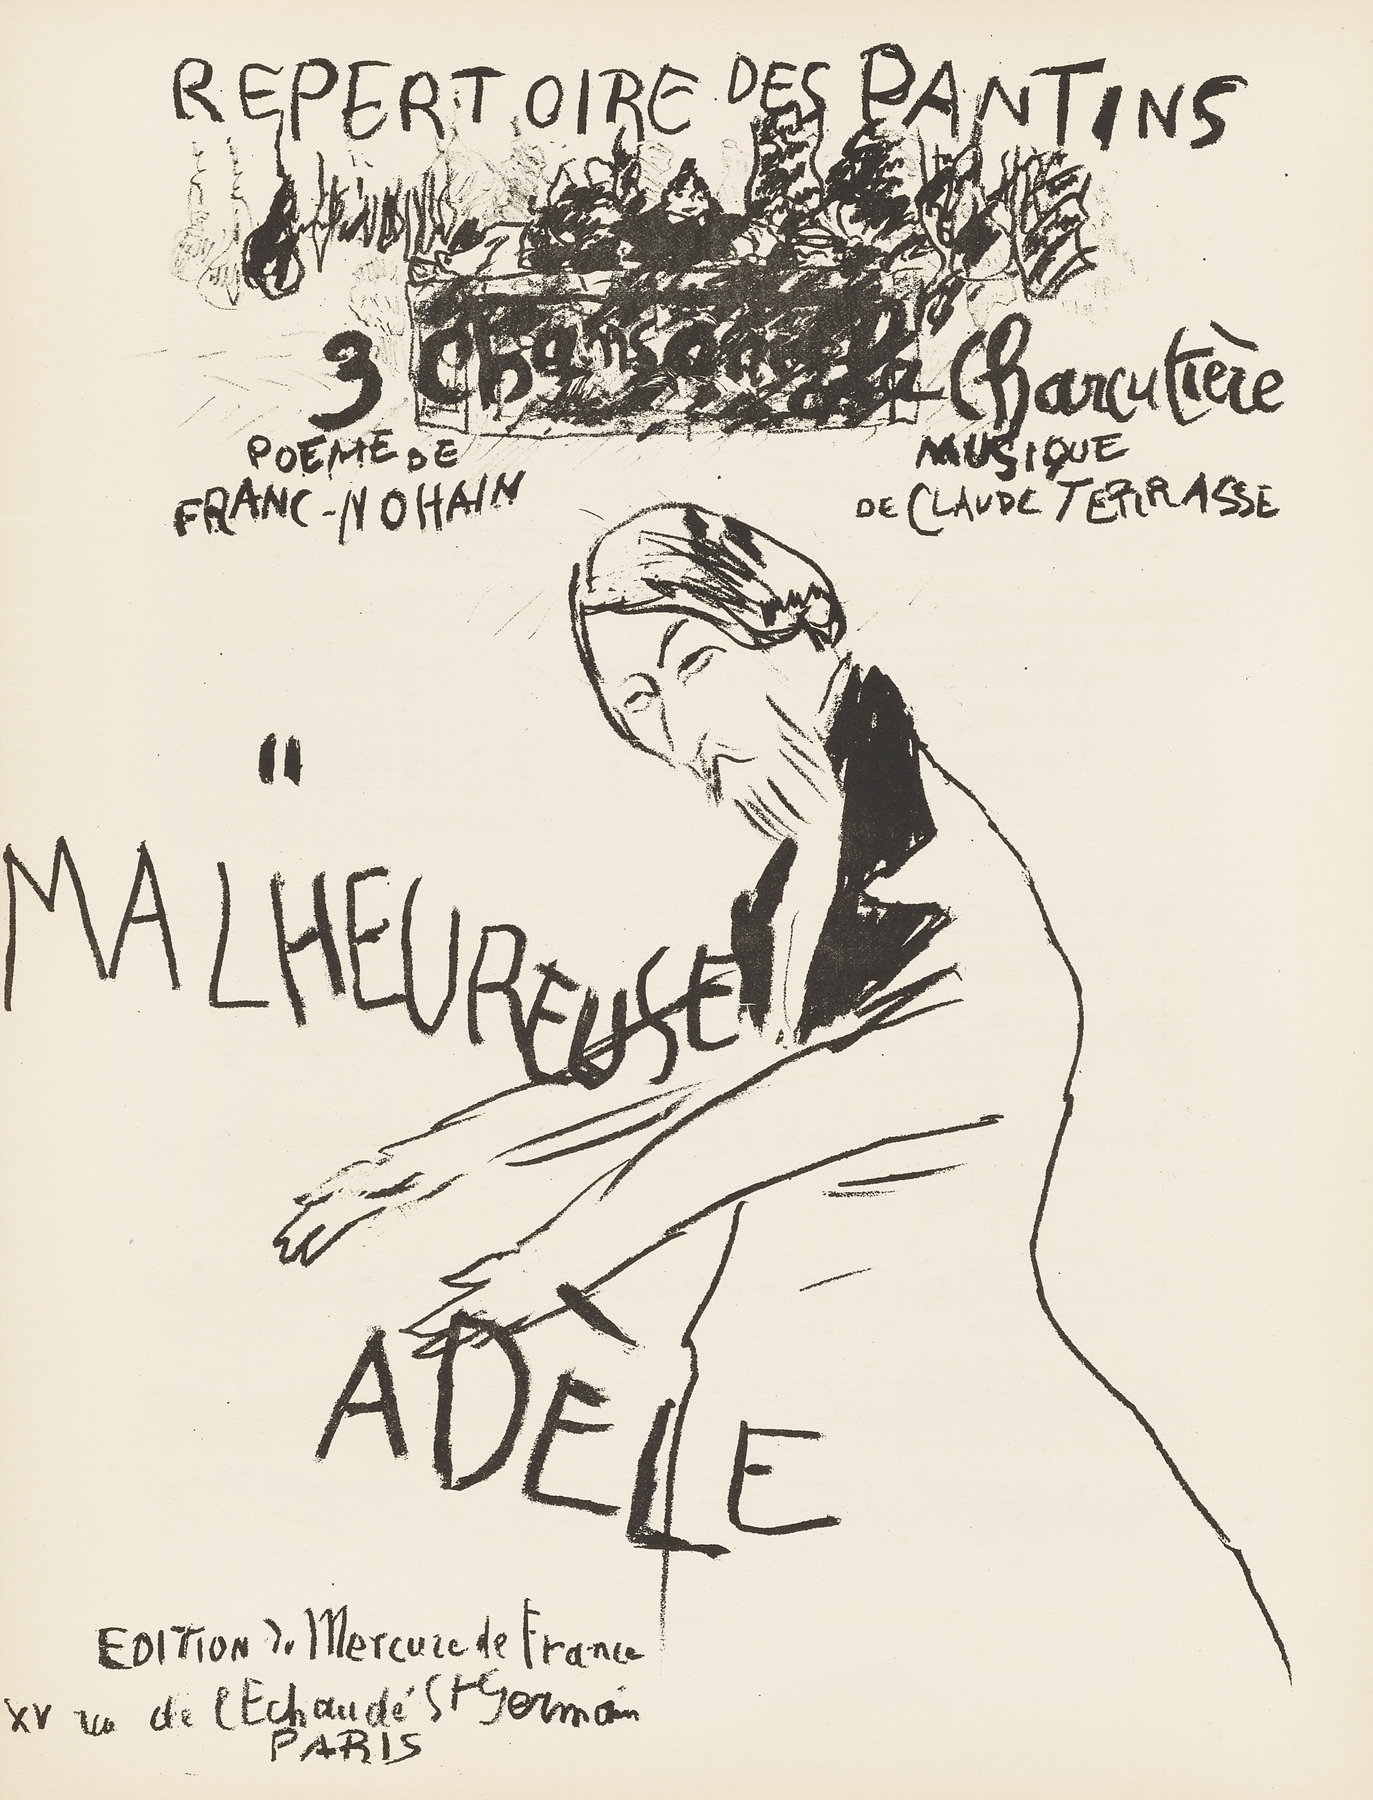 REPERTOIRE DES PANTINS
3 Chansons de la Charcutière
POEME DE
FRANC-NOHAIN
MUSIQUE
DE CLAUDE TERRASSE
"
MALHEUREUSE
ADÈLE
EDITION du Mercure de France
XV rue de l'Echaudé St Germain
PARIS